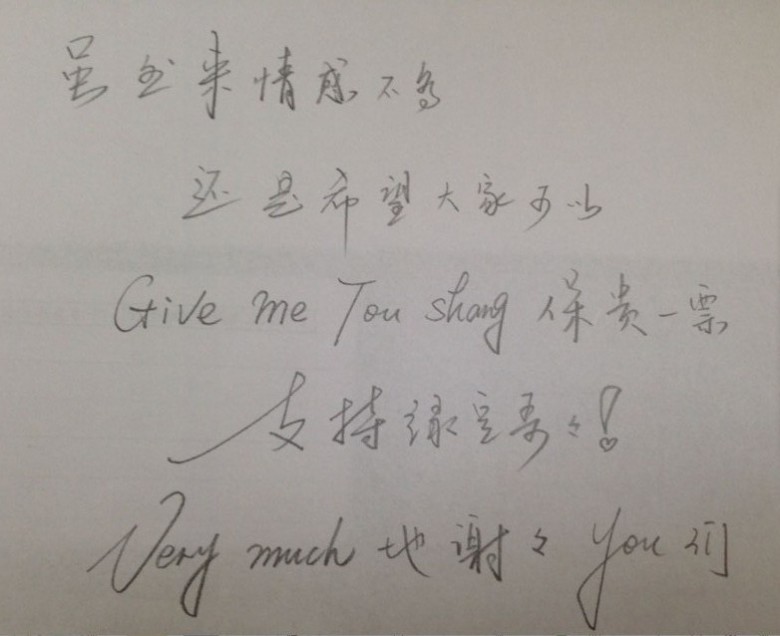 虽来情感不
还是希望大家可以
Give me Tou shang 保贵一票
支持绿豆哥々!
Very much 地谢々 you 们